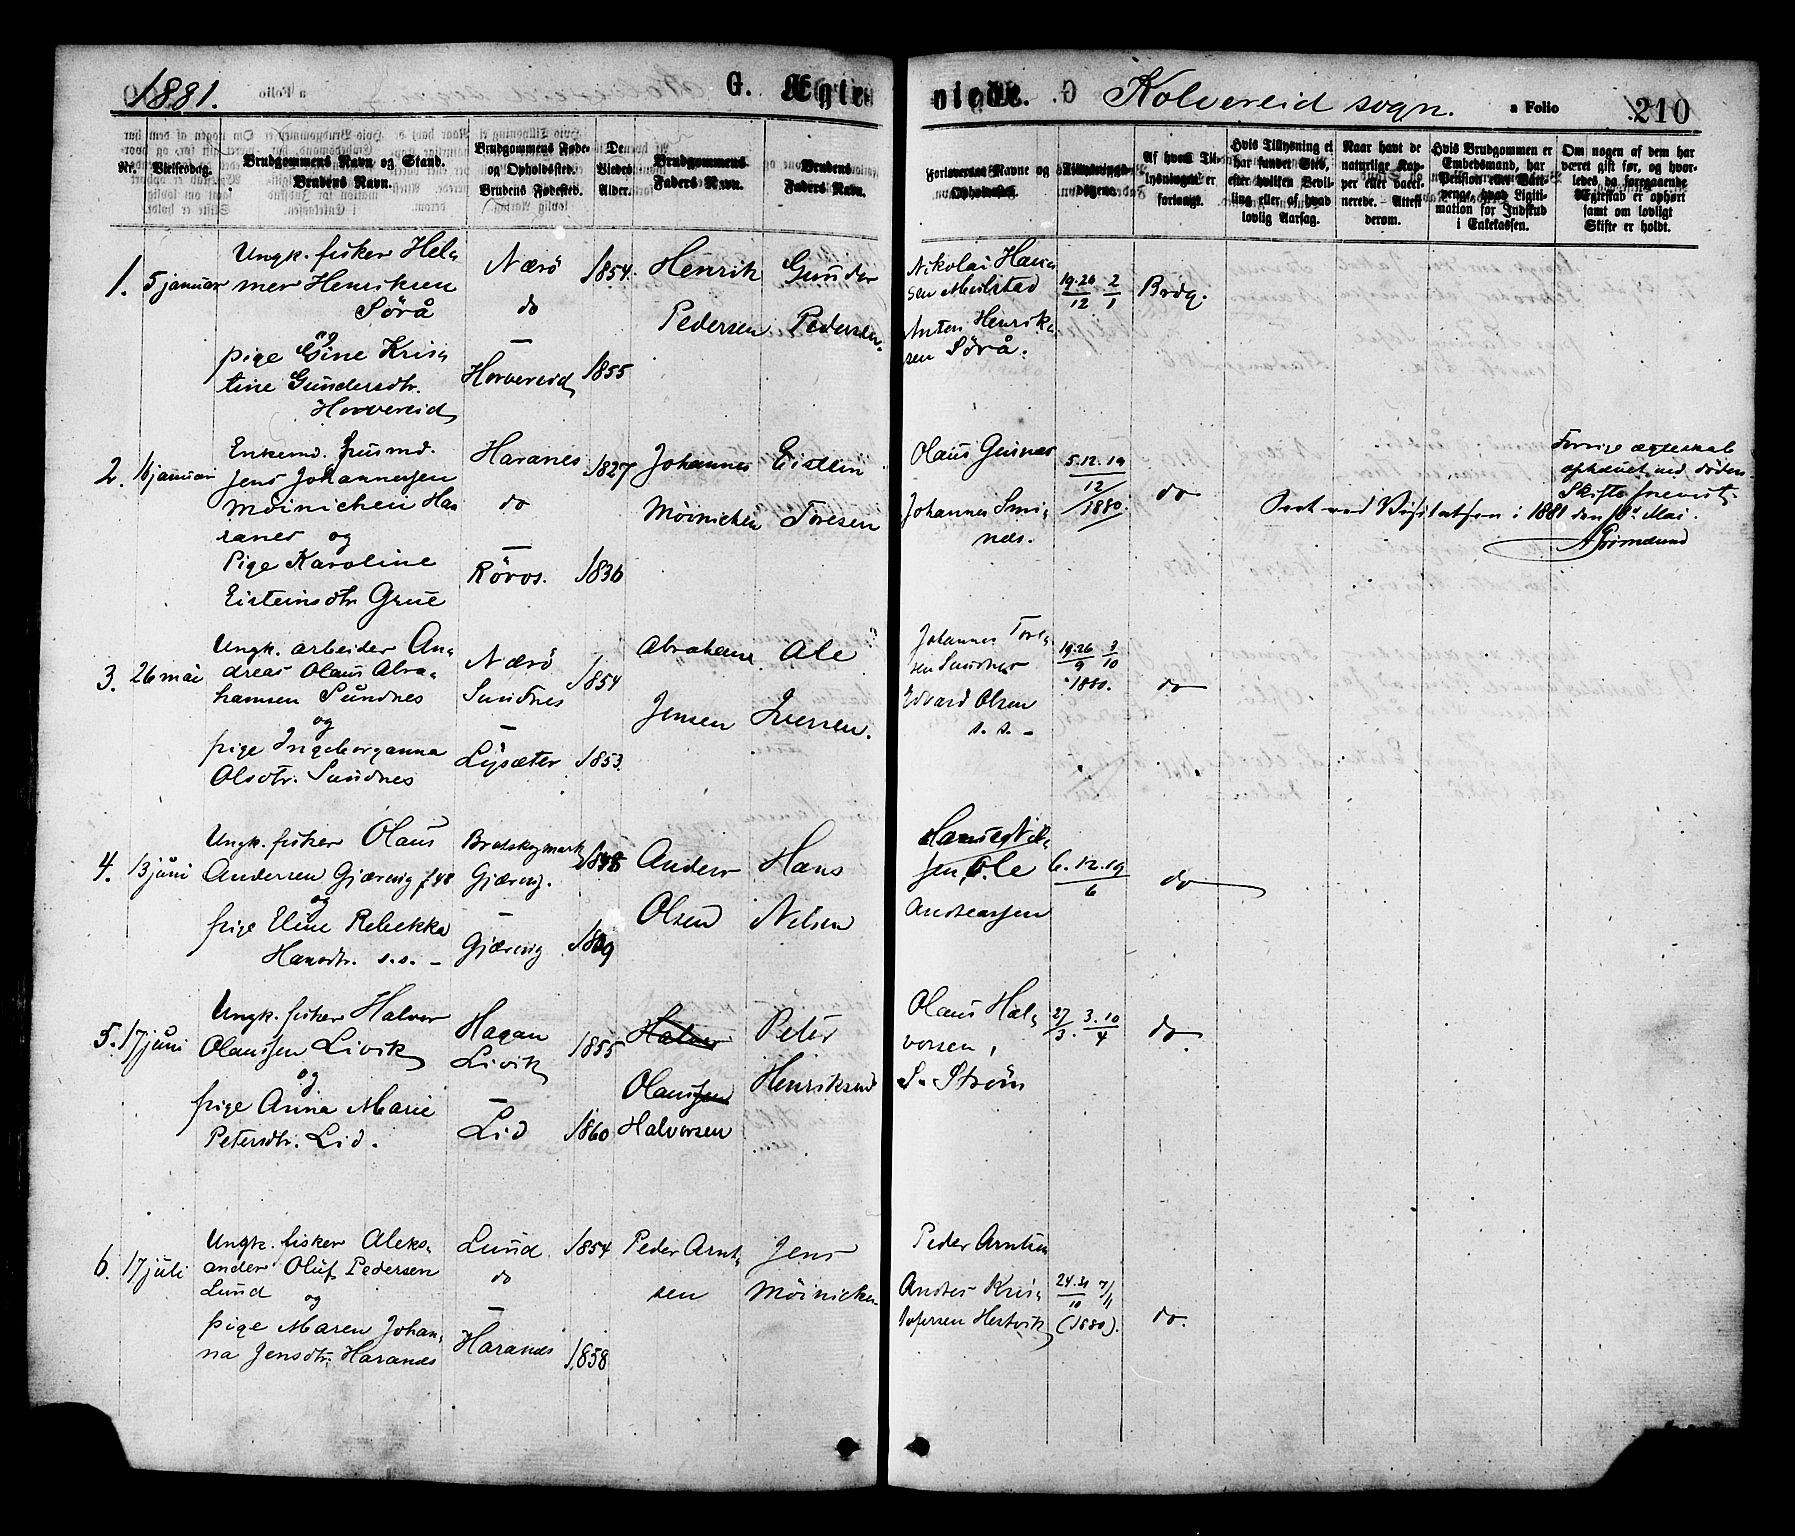 1881.
G. Ægte
viede.
Kolvereid sogn.
a Folio
210
Nr.
Vielsesdag.
Brudgommens Navn og Stand.
Brudens Navn.
Brudgommens Føde-
og Opholdssted.
Brudens Fødested.
De
Viedes
Alder.
Brudgommens
Faders Navn.
Brudens
Faders Navn.
Forlovernes Navne og
Opholdssted.
Tillysnings-
dagene.
Af hvem Til-
lysningen er
forlangt.
Hvis Tillysning ei
har fundet Sted,
efter hvilken Bevil-
ling eller af hvad
lovlig Aarsag.
Naar havt de
naturlige Kop-
per eller vacci-
nerede. - Attest
derom.
Hvis Brudgommen er
Embedsmand, har
Pension eller Vart-
penge, hvad Ligiti-
mation for Indskud
i Enkekassen.
Om nogen af dem har
været gift før, og hvor-
ledes da foregaaende
Ægteskab er ophørt
samt om lovligt
Skifte er holdt.
1.
5 januar
Ungk. fisker Hel-
mer Henriksen
Sörå
og
pige Gine Kris-
tine Gundersdtr.
Horvereid
Nærö
do
—
Horvereid
1854.
1855
Henrik
Pedersen
Gunder
Pedersen.
Nikolai Han-
sen Meilstad
Anton Henrik-
sen Sörå.
19.26 2
12 1
Brdg.
2.
16 januar
Enkemd.
Jens Johannessen
Möinichen Ha-
ranes og
Pige Karoline
Eisteinsdtr Grue
Haranes
do
—
Röros.
1827
1836
Johannes
Möinichen
Eistein
Toresen
Olaus
Johannes
5.12.19
12
/1880.
do
Forrige ægteskab
ophævet ved döden.
Seet ved Visitatsen i 1881 den 18de Mai.
3.
26 mai
Ungk. arbeider An-
dreas Olaus Abra-
hamsen Sundnes
og
pige Ingeborganna
Olsdtr. Sundnes
Nærö
Sundnes
—
Lysæter
1854
1853.
Abraham
Jensen
Ole
Iversen.
Johannes Tor-
sen Sundnes
Edvard Olsen
s. s. -
19.26 3
9 10
1880.
do
4.
13 juni
Ungk. fisker Olaus
Andersen Gjærvig f 48
og
pige Eline Rebekka
Hansdtr. s. s. -
Gjærvig.
—
Gjærvig
Anders
Olsen
Hans
Nilsen
Ole
Andreassen
6.12.19
6
do
5.
17 juni
Ungk. fisker Halvor
Olaussen Livik
og
pige Anna Marie
Petersdtr. Lid.
Hagan
Livik
—
Lid
1855
1860
Halvor
Olaussen
Halvorsen
Peter
Henriksen
Olaus Hal-
vorsen,
S. Ström
27 3.10
3. 4
do.
6.
17 juli
Ungk. fisker Aleks-
ander Oluf Pedersen
Lund og
pige Maren Johan-
na Jensdtr. Haranes
Lund.
do
—
Haranes
1854
1858
Peder Arnt-
sen
Jens
Möinichen
Peder Arntsen
Andres Kris-
tofersen Hestvik
24.31 7/
10 11
(1880).
do.